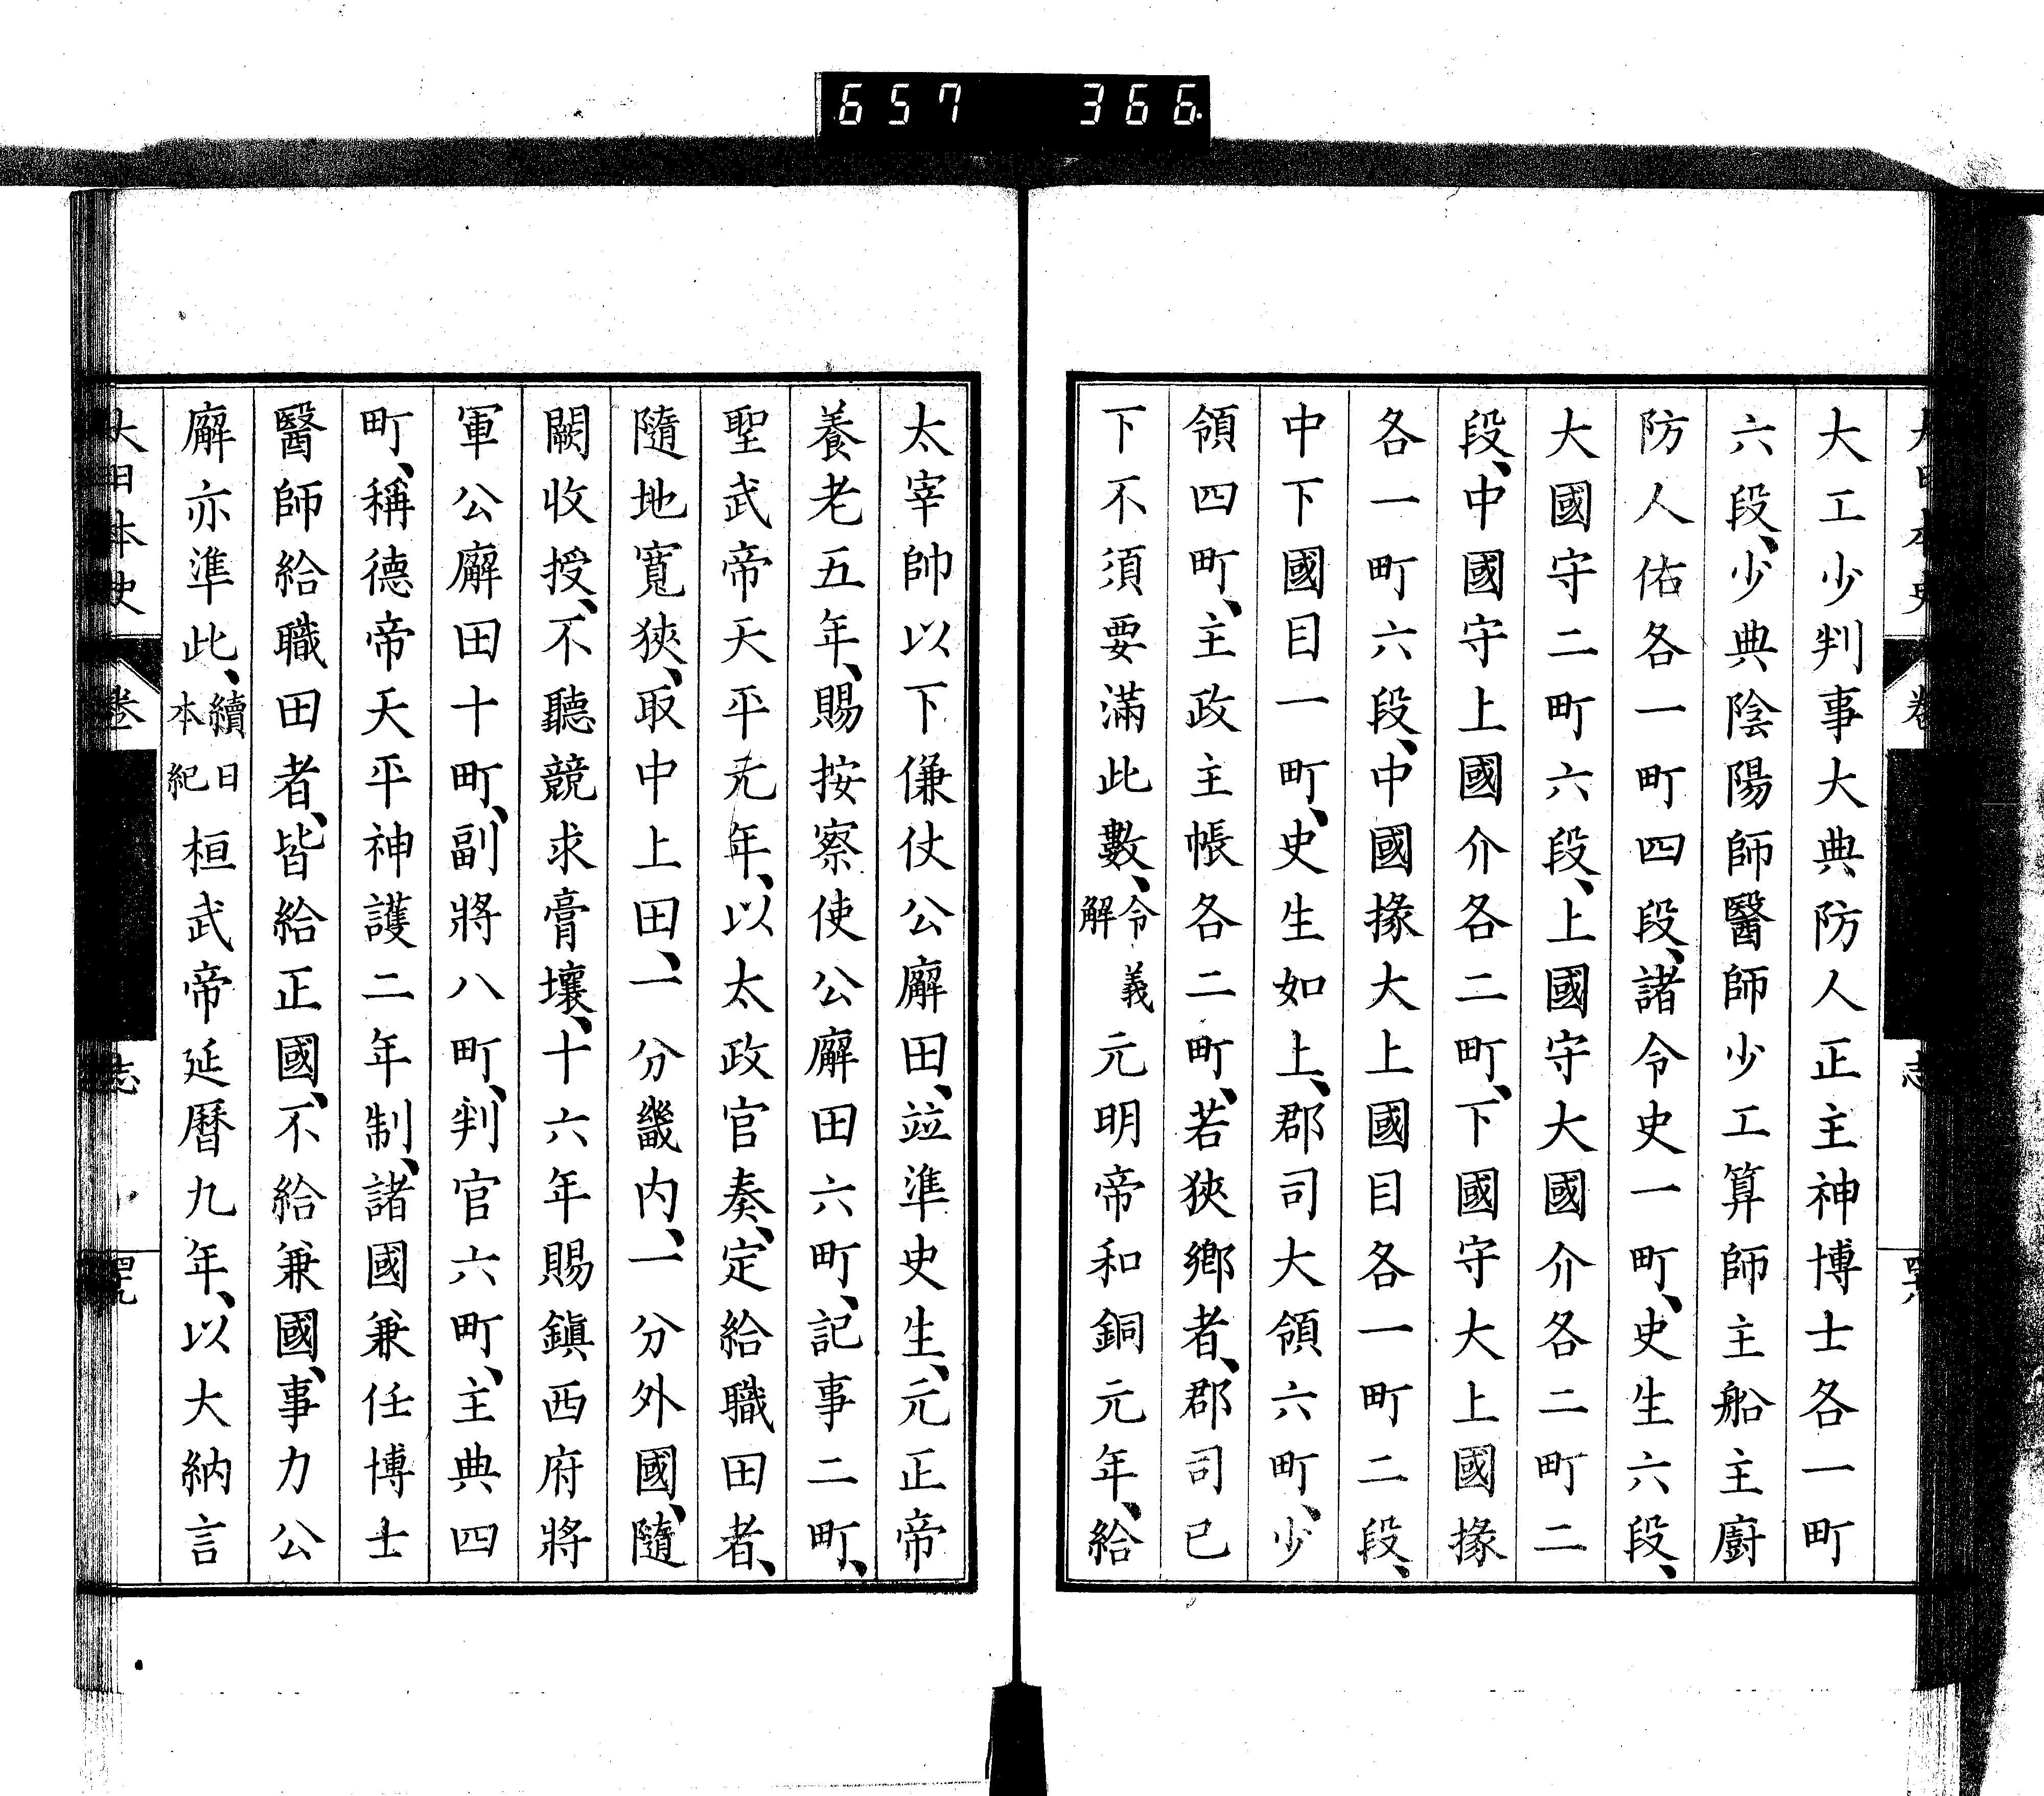 657 366
大工少判事大典防人正主神博士各一町
六段、少典陰陽師醫師少工算師主船主廚
防人佑各一町四段、諸令史一町、史生六段、
大國守二町六段、上國守大國介各二町二
段、中國守上國介各二町、下國守大上國掾
各一町六段、中國掾大上國目各一町二段、
中下國目一町、史生如上、郡司大領六町、少
領四町、主政主帳各二町、若狹鄉者、郡司已
下不須要滿此數、令義解元明帝和銅元年、給
太宰帥以下傔仗公廨田、竝準史生、元正帝
養老五年、賜按察使公廨田六町、記事二町、
聖武帝天平元年、以太政官奏、定給職田者、
隨地寬狹、取中上田、一分畿内、一分外國、隨
闕收授、不聽競求膏壤、十六年賜鎭西府將
軍公廨田十町、副將八町、判官六町、主典四
町、稱德帝天平神護二年制、諸國兼任博士
醫師給職田者、皆給正國、不給兼國、事力公
廨亦準此、續日本紀桓武帝延曆九年、以大納言
大日本史 卷 志